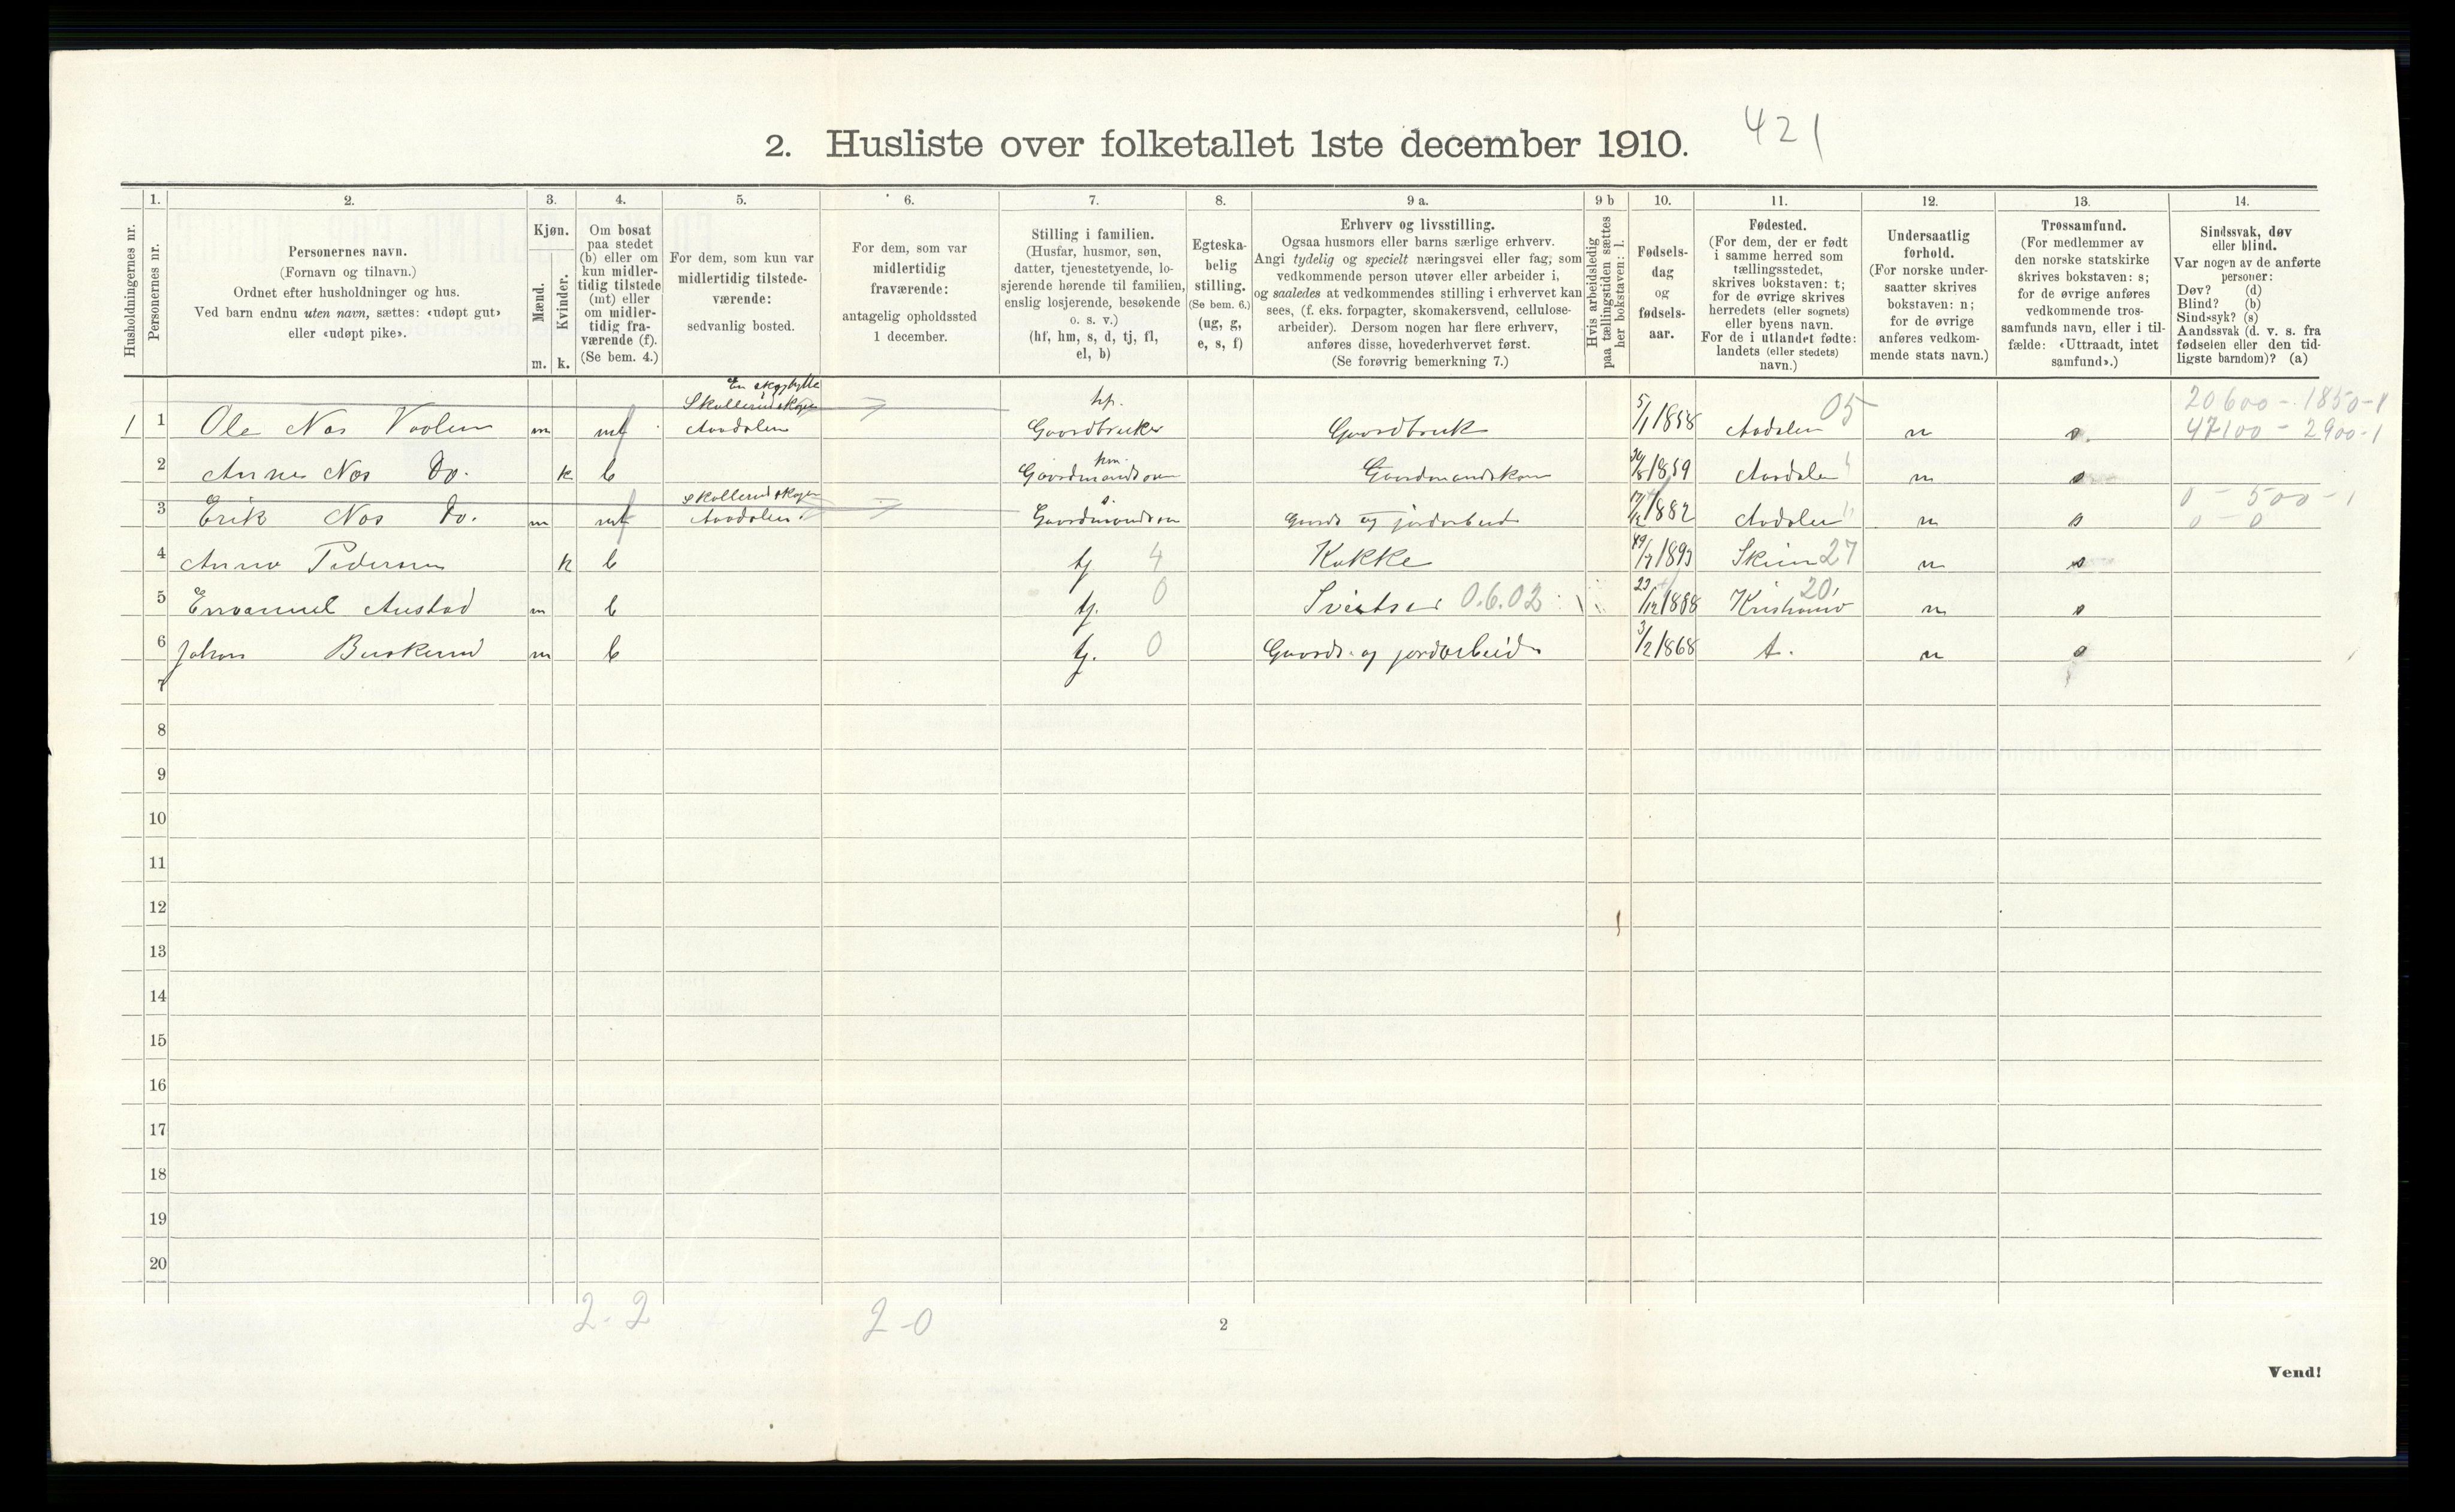 421
2. Husliste over folketallet 1ste december 1910.
Husholdningernes nr.
1.
Personernes nr.
2.
Personernes navn.
(Fornavn og tilnavn.)
Ordnet efter husholdninger og hus.
Ved barn endnu uten navn, sættes: «udøpt gut»
eller «udøpt pike».
3.
Kjøn.
Mænd.
Kvinder.
m. k.
4.
Om bosat
paa stedet
(b) eller om
kun midler-
tidig tilstede
(mt) eller
om midler-
tidig fra-
værende (f).
(Se bem. 4.)
5.
For dem, som kun var
midlertidig tilstede-
værende:
sedvanlig bosted.
6.
For dem, som var
midlertidig
fraværende:
antagelig opholdssted
1 december.
7.
Stilling i familien.
(Husfar, husmor, søn,
datter, tjenestetyende, lo-
sjerende hørende til familien,
enslig losjerende, besøkende
o. s. v.)
(hf, hm, s, d, tj, fl,
el, b)
8.
Egteska-
belig
stilling.
(Se bem. 6.)
(ug, g,
e, s, f)
9 a.
Erhverv og livsstilling.
Ogsaa husmors eller barns særlige erhverv.
Angi tydelig og specielt næringsvei eller fag, som
vedkommende person utøver eller arbeider i,
og saaledes at vedkommendes stilling i erhvervet kan
sees, (f. eks. forpagter, skomakersvend, cellulose-
arbeider). Dersom nogen har flere erhverv,
anføres disse, hovederhvervet først.
(Se forøvrig bemerkning 7.)
9 b
Hvis arbeidsledig
paa tællingstiden sættes
her bokstaven: l.
10.
Fødsels-
dag
og
fødsels-
aar.
11.
Fødested.
(For dem, der er født
i samme herred som
tællingsstedet,
skrives bokstaven: t;
for de øvrige skrives
herredets (eller sognets)
eller byens navn.
For de i utlandet fødte:
landets (eller stedets)
navn.)
12.
Undersaatlig
forhold.
(For norske under-
saatter skrives
bokstaven: n;
for de øvrige
anføres vedkom-
mende stats navn.)
13.
Trossamfund.
(For medlemmer av
den norske statskirke
skrives bokstaven: s;
for de øvrige anføres
vedkommende tros-
samfunds navn, eller i til-
fælde: «Uttraadt, intet
samfund».)
14.
Sindssvak, døv
eller blind.
Var nogen av de anførte
personer:
Døv? (d)
Blind? (b)
Sindssyk? (s)
Aandssvak (d. v. s. fra
fødselen eller den tid-
ligste barndom)? (a)
En skogshytte
Skollerudskogen hf. 20600 - 1850-1
1 1 Ole Nos Voolen m mt Aadalen Gaardbruker Gaardbruk 5/1 1858 Aadalen 05 n s. 47100 - 2900-1
hm.
2 Anne Nos Do. k b Gaardmandskon 1859 Aadalen n s
Skollerudskogen s. 0 - 500 - 1
3 Erik Nos Do. m mt Aadalen Gaardmandssøn Gaards og jordarbeid 1882 Aadalen n s 0 - 0
4 Anna Pedersen k b tj 4 Kokke 27 n s
5 Emanuel Austad m b tj. 0 0.6.02 22/12 1888 20 n s
6 Johan Buskerud m b tj. 0 Gaards- og jordarbeide 3/2 1868 t. n s
7
8
9
10
11
12
13
14
15
16
17
18
19
20
2-2 2-0
2
Vend!